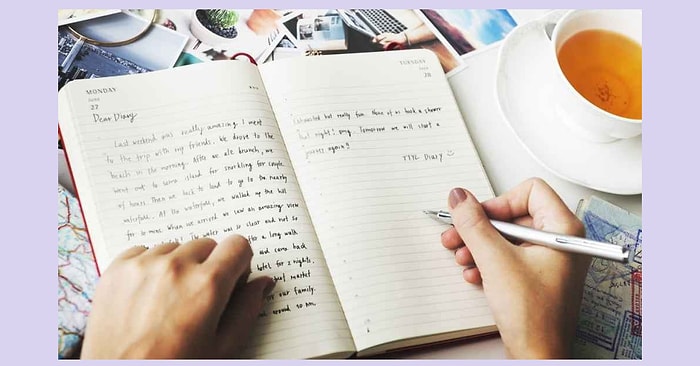 MONDAY
June
27
Dear Diary
Last weekend was really amazing I went
to the trip with my friends. We drove to the
beach in the morning. After we ate brunch, we
went out to some island for snorkling for couple
of hours. Then we back to land to go to the nearby
waterfall. At the waterfall, we walked up the hill
for 30 mins. When we arrived we saw an amazing view
The water was so clear and not so
after a long walk
and came back
hotel for 2 nights.
market
for our family.
around 10 am.
TUESDAY
June
28
Exhausted but really fun. None of us took a shower
last night! omg. Tomorrow we will start a
journey again!!
TTYL Diary